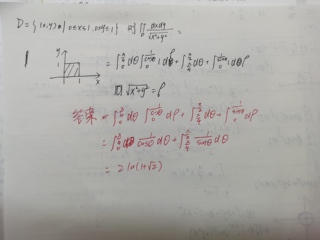 D={(x,y)|0≤x≤1,0≤y≤1} 则∬_D dxdy/√(x²+y²) =
y
1
1 x
=∫_0^{π/4}dθ∫_0^{1/cosθ}1dρ+∫_{π/4}^{π/2}dθ+∫_0^{1/sinθ}1dθρ
则√(x²+y²)=ρ
答案=∫_0^{π/4}dθ∫_0^{1/cosθ}dρ+∫_{π/4}^{π/2}dθ+∫_0^{1/sinθ}dρ
=∫_0^{π/4} 1/cosθ dθ+∫_{π/4}^{π/2} 1/sinθ dθ
=2ln(1+√2)